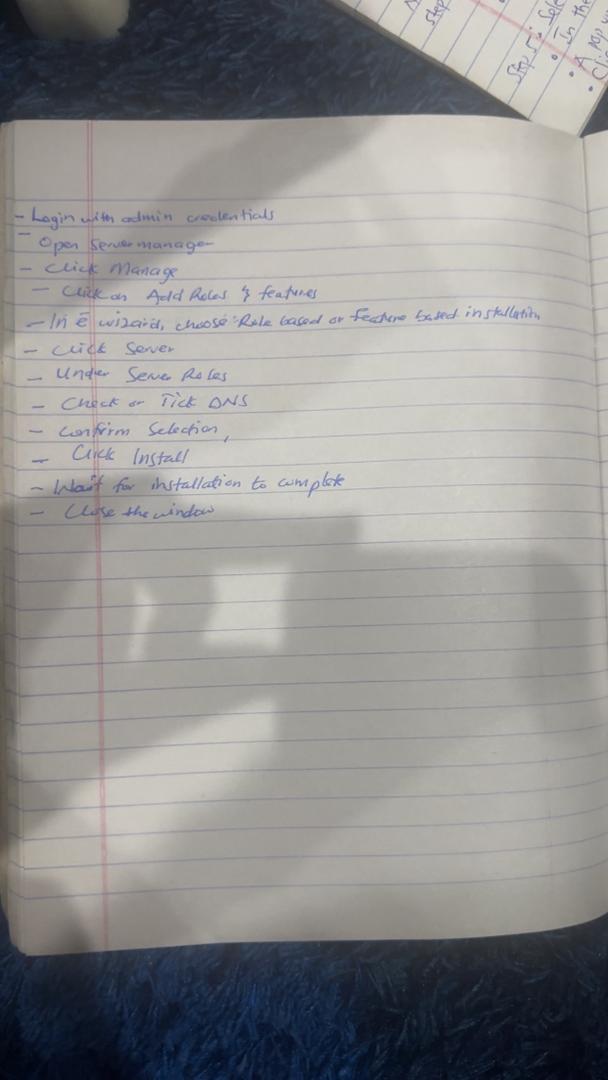 Step
Step 5: Sele
• In the
• A pop u
• Clic
- Login with admin credentials
- Open Server manager
- Click Manage
- Click on Add Roles & features
- In ē wizard, choose Role based or feature based installation
- Click Server
- Under Server Roles
- Check or Tick DNS
- Confirm Selection,
- Click Install
- Wait for installation to complete
- Close the window